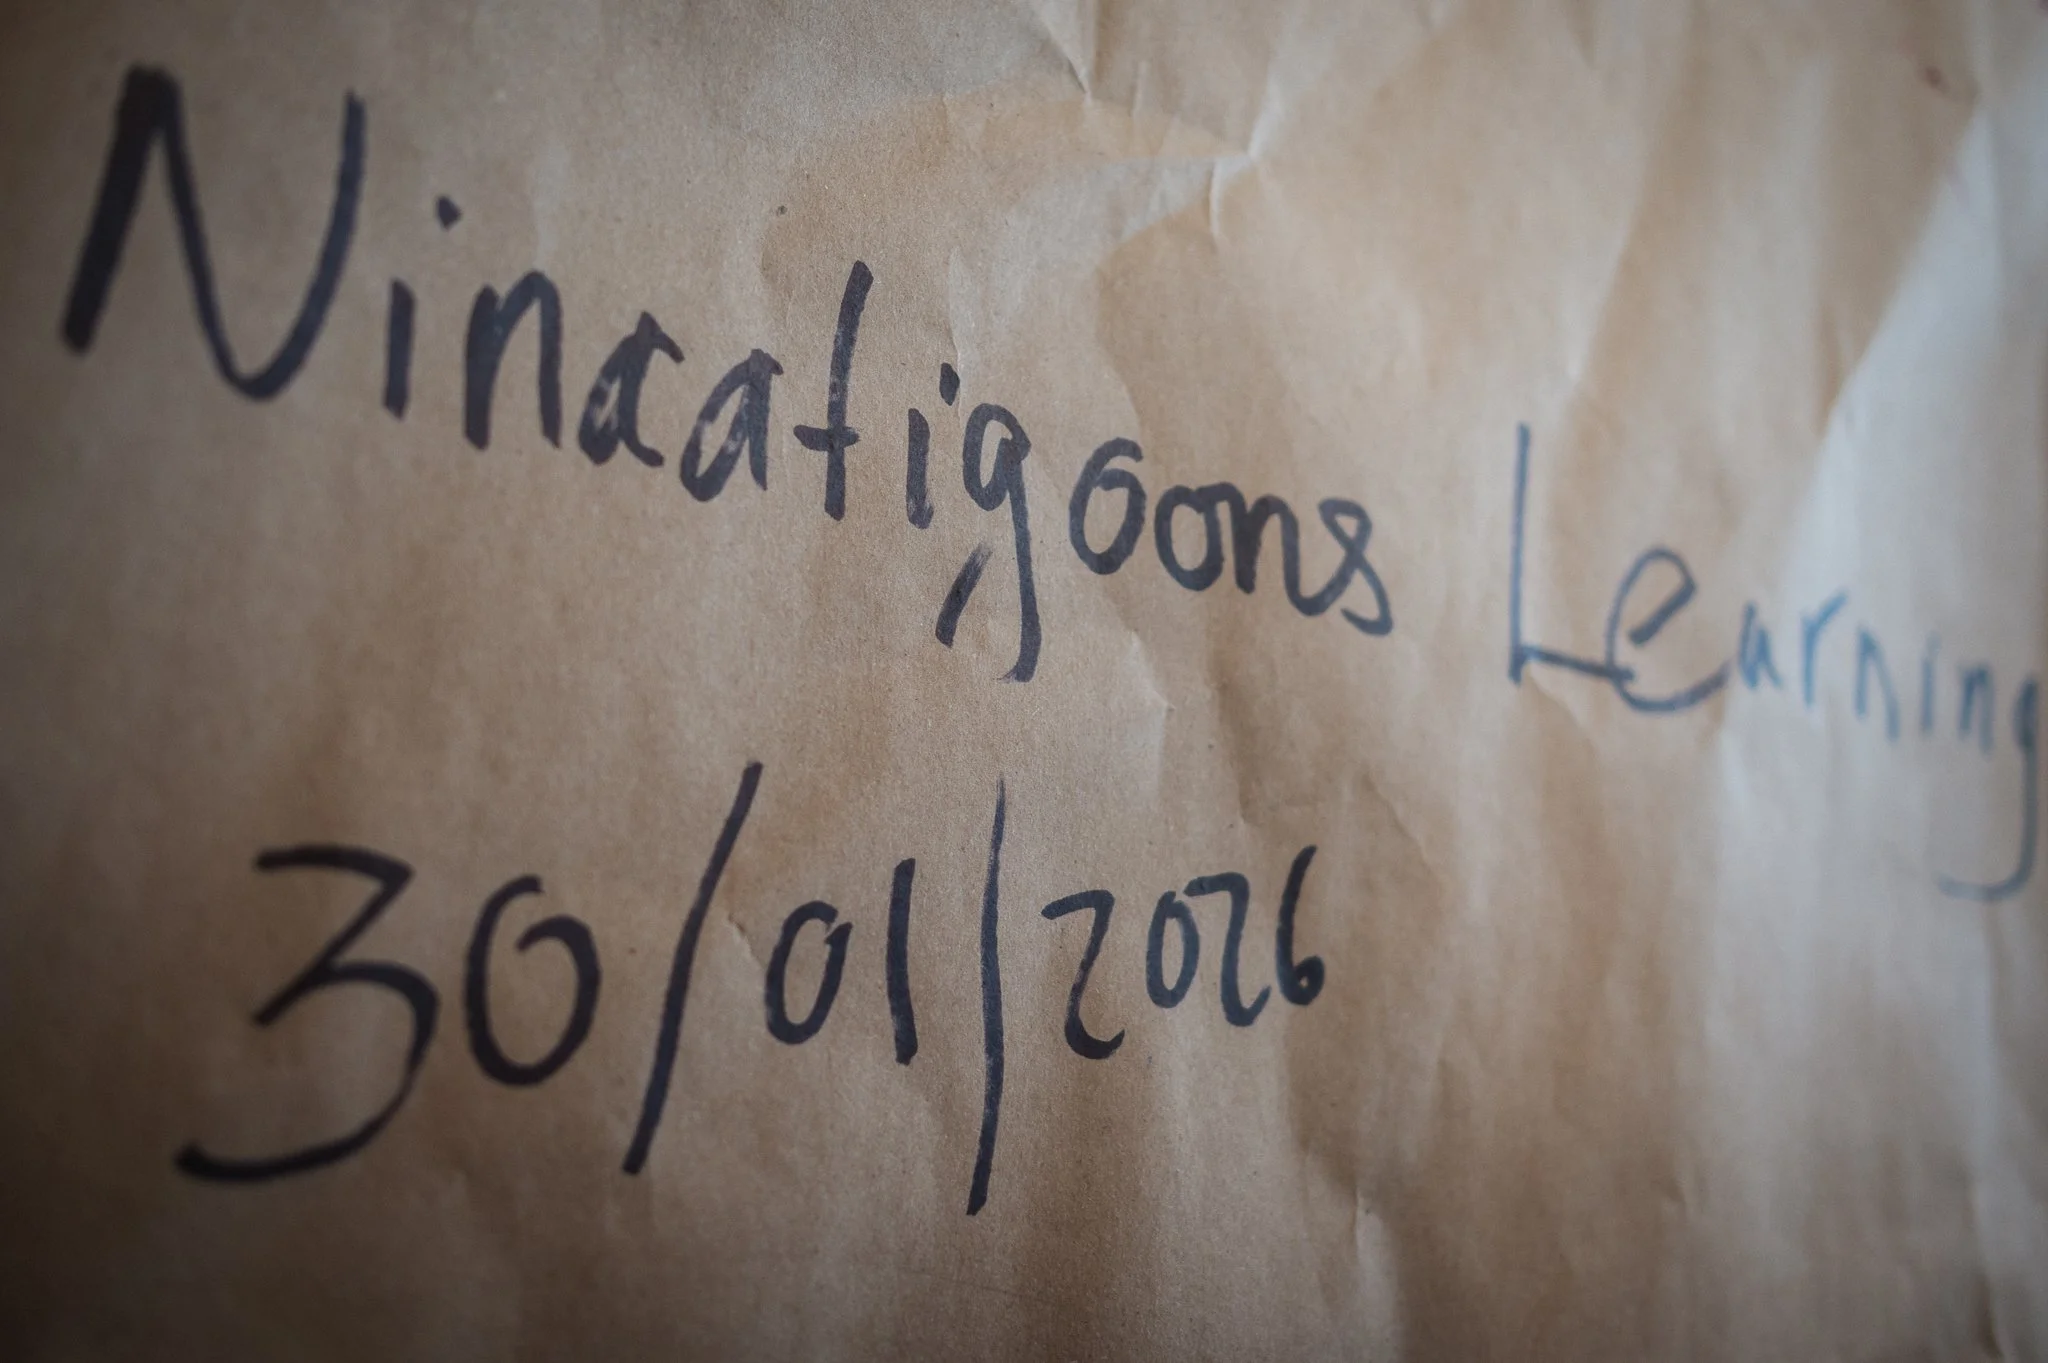 Ninaatigoons Learning
30/01/2026